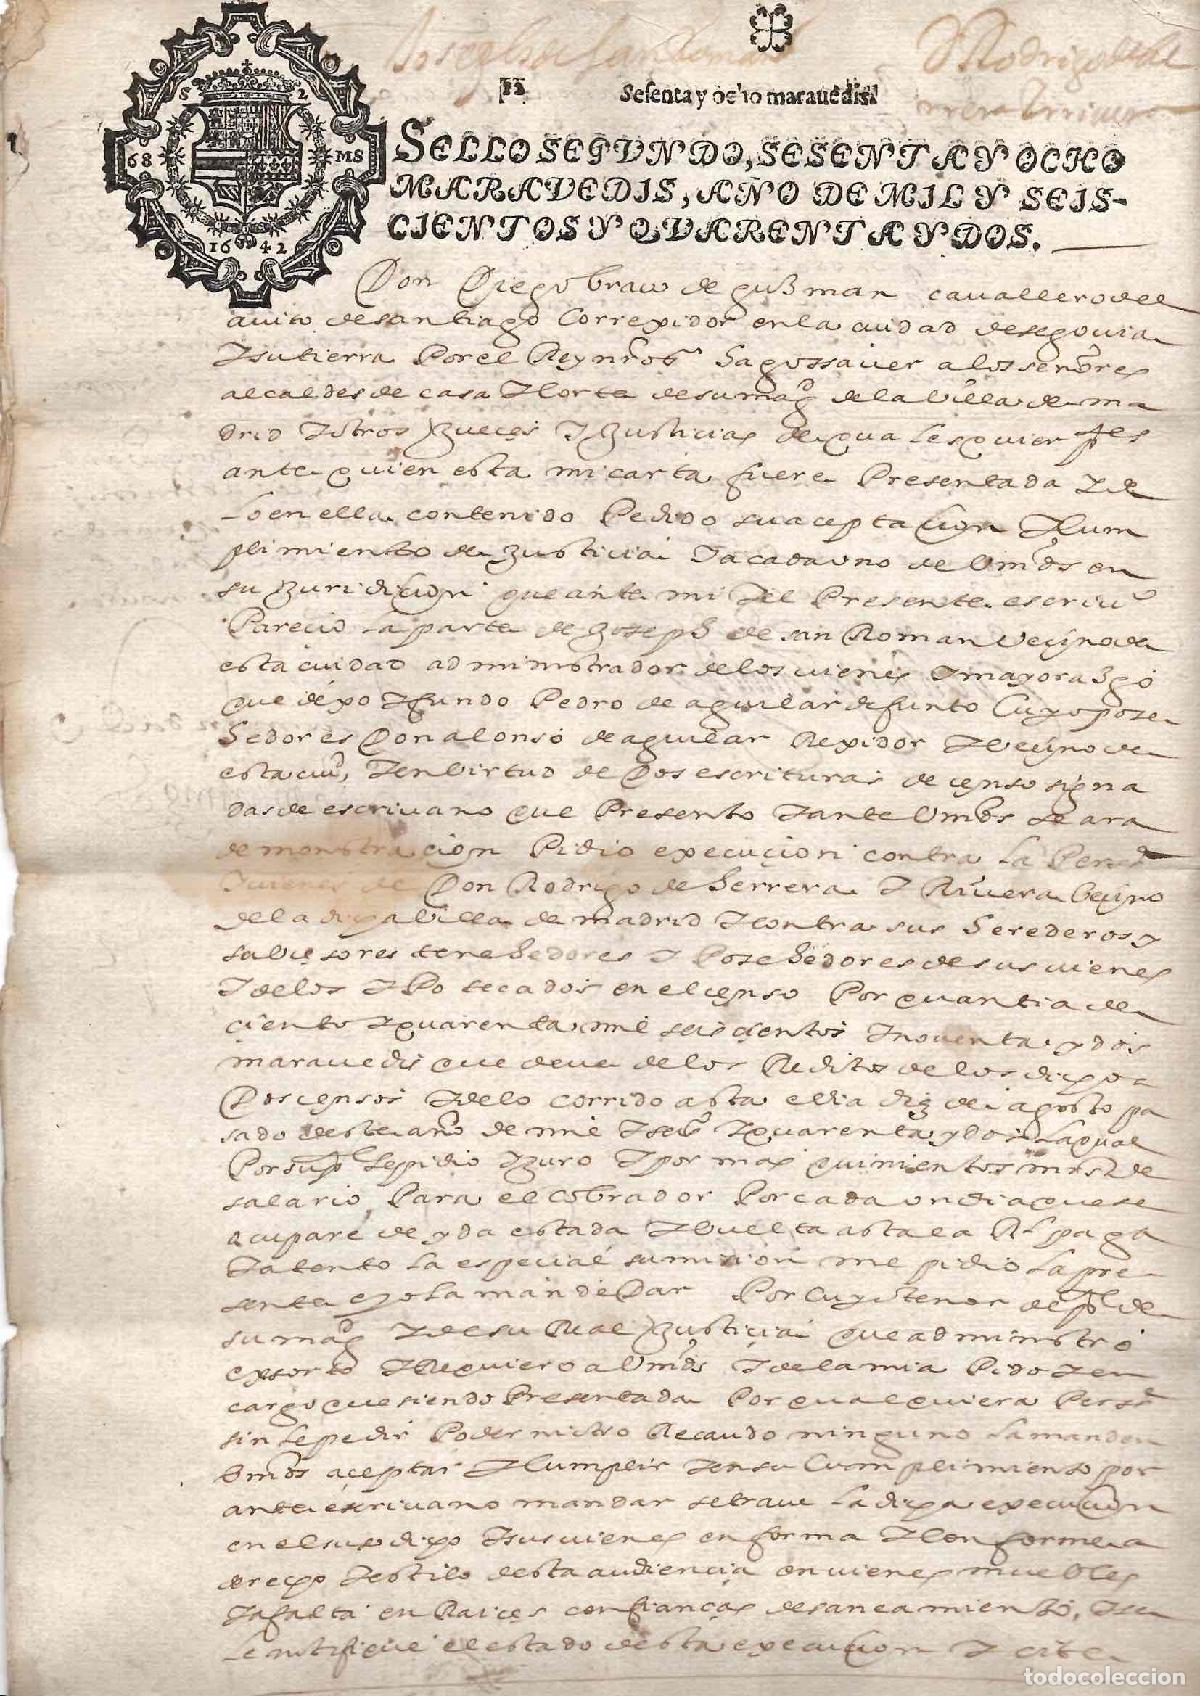 Joseph de san Roman
Rodrigo de He
rrera y rrivera
Sesenta y ocho marauedis
SELLO SEGVNDO, SESENTA Y OCHO
MARAVEDIS, AÑO DE MIL Y SEIS-
CIENTOS Y QVARENTA Y DOS.
S 2
68 MS
1642
Don Diego brauo de guzman cauallero del
auito de santiago Correxidor en la ciudad de segouia
Y su tierra Por el Rey nrõ sr Hago ssauer a los señores
alcaldes de casa Y Corte de su magd de la Villa de ma
drid Y otros Jueces Y Justicias de qualesquier ptes
ante quien esta mi carta fuere Presentada Y de
Lo en ella contenido Pedido su aceptacion Y Cum
plimiento de Justicia Y a cada uno de Vmds en
su Juridicion que ante mi Y el Presente escriuo
Parecio la parte de Joseph de san Roman Vecino de
esta ciudad administrador de los uienes Y mayorazgo
que dexo Y fundo Pedro de aguilar difunto Cuyo pose
edor es Don alonso de aguilar Rexidor Y Vecino de
esta ciud, Y en Virtud de Dos escrituras de censo signa
das de escriuano que Presento Y ante Vmds se ara
demonstracion Pidio execucion contra La Persa
Y uienes de Don Rodrigo de Herrera Y Riuera Vecino
de la dicha Villa de madrid Y Contra sus Herederos y
subcesores tenedores Y Poseedores de sus uienes
Y de los Ypotecados en el censo Por quantia de
ciento Y quarenta mil seiscientos Y nouenta y dos
marauedis que deue de los Reditos de los dichos
Dos censos Y de lo corrido asta el dia diez de agosto pa
sado deste año de mil Y seiso Y quarenta y dos la qual
Por su pte se pidio Y Juro Y por mas quinientos mrs de
salario Para el Cobrador Por cada un dia que se
ocupare de yda estada Y Vuelta asta la Rl paga
Y atento La especial sumision me pidio La pre
sente e yo La mande Dar Por Cuyo tenor de pte de
su magd Y de su Real Justicia que administro
exsorto Y Requiero a Vmds Y de la mia Pido Y en
cargo que siendo Presentada Por qualquiera Persa
sin le pedir Poder ni otro Recaudo ninguno La manden
Vmds aceptar Y Cumplir Y en su Cumplimiento por
ante escriuano mandar se traue La dicha execucion
en el susodicho Y sus uienes en forma Y Conforme a
derecho Y estilo desta audiencia en uienes muebles
Y a falta en Raices con fianças de saneamiento, Y se
le notifique el estado desta execucion Y cite
todocoleccion